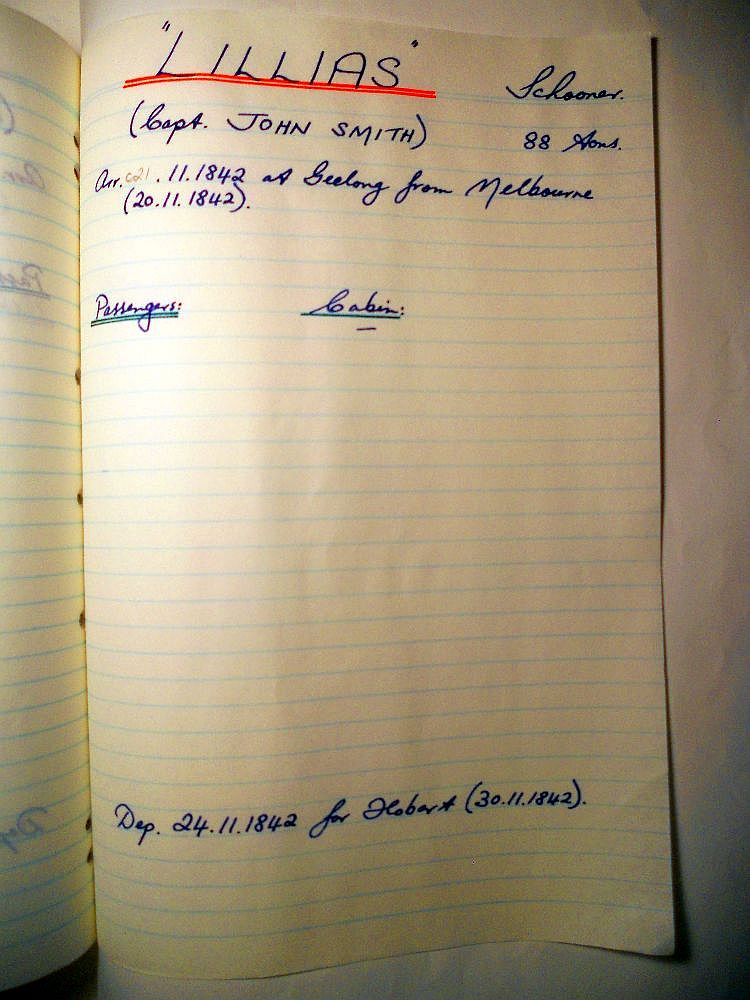 "LILLIAS" Schooner.
(Capt. JOHN SMITH) 88 tons.
Arr. c21.11.1842 at Geelong from Melbourne
(20.11.1842).
Passengers: Cabin:
—
Dep. 24.11.1842 for Hobart (30.11.1842).